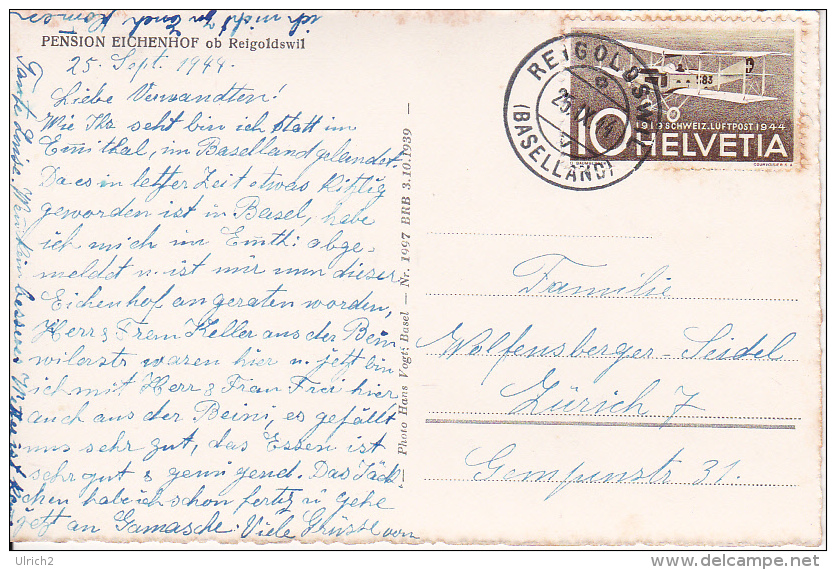 ich nicht zu Euch komme
PENSION EICHENHOF ob Reigoldswil
25. Sept. 1944.
Liebe Verwandten!
Wie Ihr seht bin ich statt im
Emithal, im Baselland gelandet.
Da es in letter Zeit etwas
geworden ist in Basel, habe
ich mich im Emth: abge-
meldet u. ist mir nun dieser
Eichenhof angeraten worden,
Herr & Frau Keller aus der Bein
wilerstr waren hier u. jetzt bin
ich mit Herr & Frau Frei hier
auch aus der Beini, es gefällt
uns sehr gut, das Essen ist
sehr gut & genügend. Das Jäck
chen habe ich schon fertig u gehe
jetzt an Gamasche. Viele Grüsse von
Tante Luise.
Photo Hans Vogt, Basel — Nr. 1997 BRB 3.10.1939
REIGOLDSWIL
25.IX.44
(BASELLAND)
183
1913 SCHWEIZ. LUFTPOST 1944
10 HELVETIA
COURVOISIER S.A.
Familie
Wolfensberger-Seidel
Zürich 7
Gempenstr. 31.
Ulrich2
www.delcampe.net